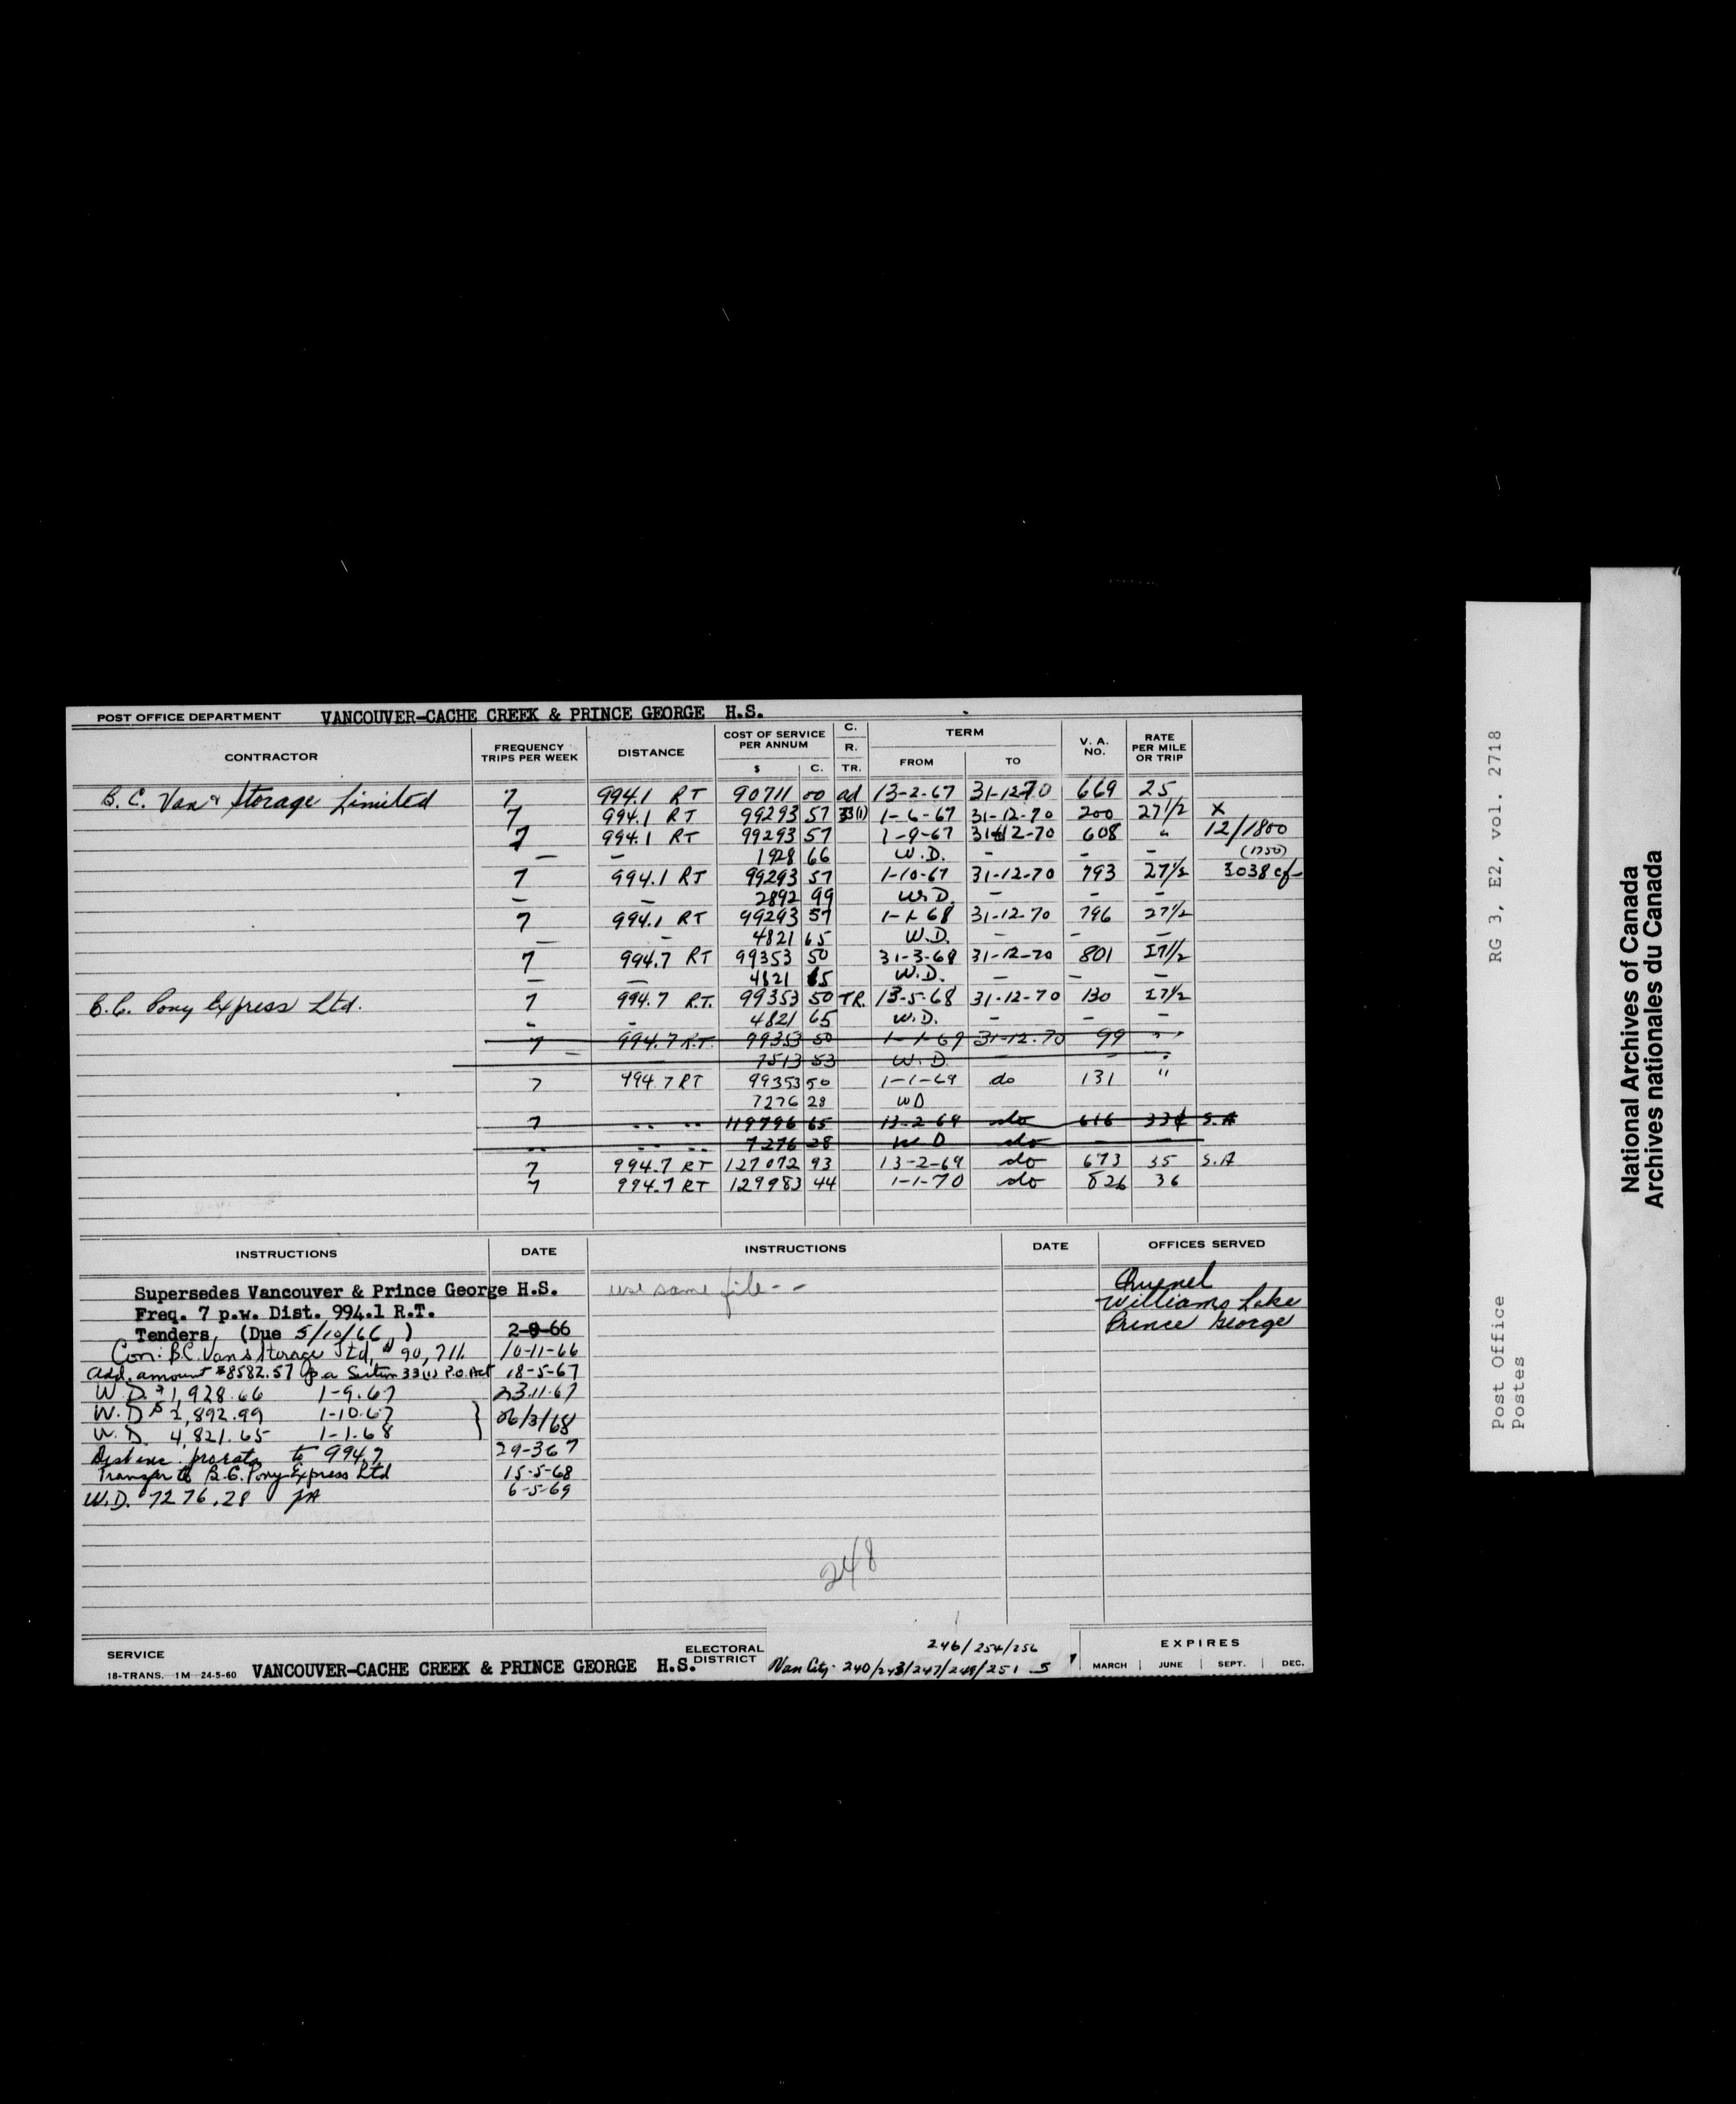 POST OFFICE DEPARTMENT VANCOUVER-CACHE CREEK & PRINCE GEORGE H.S.
CONTRACTOR FREQUENCY TRIPS PER WEEK DISTANCE COST OF SERVICE PER ANNUM $ C. C. R. TR. TERM FROM TO V. A. NO. RATE PER MILE OR TRIP
B.C. Van & Storage Limited 7 994.1 RT 90711 00 ad 13-2-67 31-12-70 669 25
7 994.1 RT 99293 57 33(1) 1-6-67 31-12-70 200 27 1/2 X
7 994.1 RT 99293 57 1-9-67 31-12-70 608 " 12/1800
— — 1928 66 W.D. — — — (1750)
7 994.1 RT 99293 57 1-10-67 31-12-70 793 27 1/2 3038 cf
— — 2892 99 W.D. — — —
7 994.1 RT 99293 57 1-1-68 31-12-70 796 27 1/2
— — 4821 65 W.D. — — —
7 994.7 RT 99353 50 31-3-68 31-12-70 801 27 1/2
— — 4821 65 W.D. — — —
B.C. Pony Express Ltd. 7 994.7 R.T. 99353 50 TR. 13-5-68 31-12-70 130 27 1/2
- - 4821 65 W.D. - - -
7 994.7 R.T. 99353 50 1-1-69 31-12-70 99 " "
— 7513 53 W.D.
7 994.7 RT 99353 50 1-1-69 do 131 "
7276 28 WD
7 " " 119796 65 13-2-69 do 616 33¢ S.A
" " " 7276 28 W D do
7 994.7 RT 127072 93 13-2-69 do 673 35 S.A
7 994.7 RT 129983 44 1-1-70 do 826 36
INSTRUCTIONS DATE INSTRUCTIONS DATE OFFICES SERVED
Supersedes Vancouver & Prince George H.S. use same file - - Quesnel
Freq. 7 p.w. Dist. 994.1 R.T. Williams Lake
Tenders, (Due 5/10/66,) 2-9-66 Prince George
Con: B.C. Van & Storage Ltd, $90,711. 10-11-66
Add. amount $8582.57 p.a Section 33(1) P.O. Act 18-5-67
W.D. $1,928.66 1-9-67 23-11-67
W.D $2,892.99 1-10-67 } 06/3/68
W.D. 4,821.65 1-1-68
Dist inc. prorata to 994.7 29-3-67
Transfer to B.C. Pony Express Ltd 15-5-68
W.D. $7276.28 JA 6-5-69
248
SERVICE ELECTORAL DISTRICT 246/254/256 EXPIRES
18-TRANS. 1M-24-5-60 VANCOUVER-CACHE CREEK & PRINCE GEORGE H.S. Van City- 240/243/247/249/251 5 MARCH JUNE SEPT. DEC.
RG 3, E2, vol. 2718
Post Office
Postes
National Archives of Canada
Archives nationales du Canada